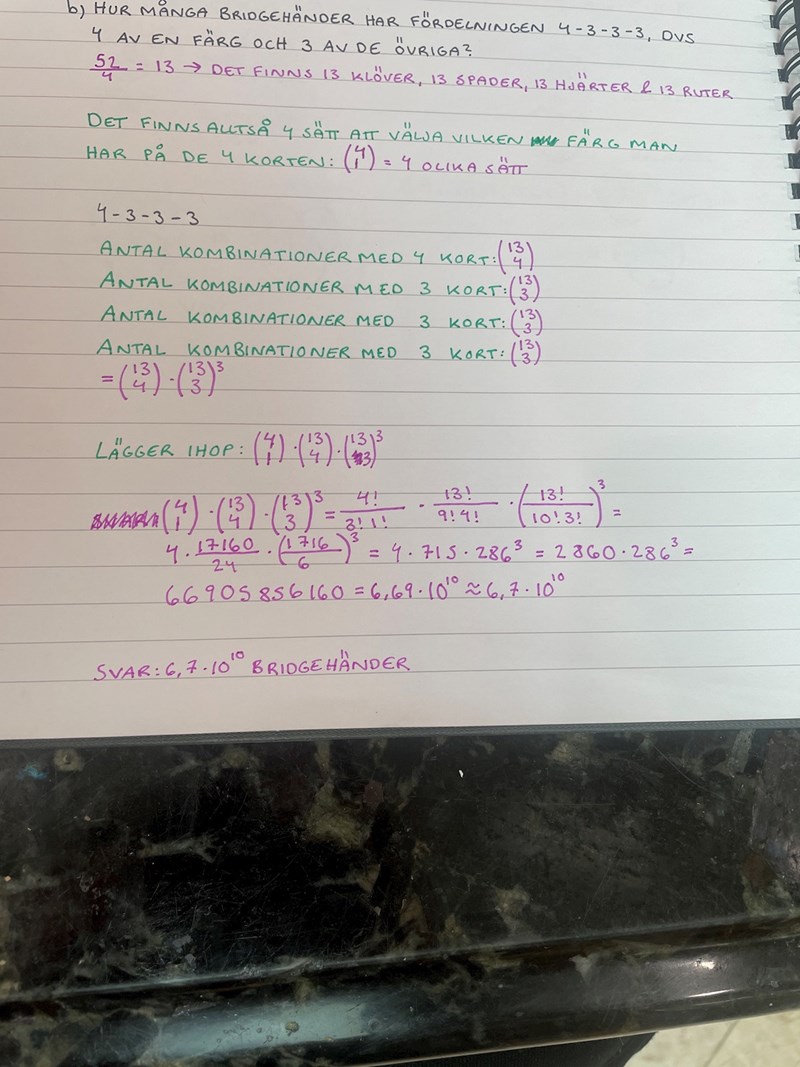 b) HUR MÅNGA BRIDGEHÄNDER HAR FÖRDELNINGEN 4-3-3-3, DVS
4 AV EN FÄRG OCH 3 AV DE ÖVRIGA?
52/4 = 13 → DET FINNS 13 KLÖVER, 13 SPADER, 13 HJÄRTER & 13 RUTER
DET FINNS ALLTSÅ 4 SÄTT ATT VÄLJA VILKEN FÄRG MAN
HAR PÅ DE 4 KORTEN: (4 1) = 4 OLIKA SÄTT
4-3-3-3
ANTAL KOMBINATIONER MED 4 KORT: (13 4)
ANTAL KOMBINATIONER MED 3 KORT: (13 3)
ANTAL KOMBINATIONER MED 3 KORT: (13 3)
ANTAL KOMBINATIONER MED 3 KORT: (13 3)
= (13 4) · (13 3)³
LÄGGER IHOP: (4 1) · (13 4) · (13 3)³
(4 1) · (13 4) · (13 3)³ = 4!/3!1! · 13!/9!4! · (13!/10!3!)³ =
4 · 17160/24 · (1716/6)³ = 4 · 715 · 286³ = 2860 · 286³ =
66905856160 = 6,69 · 10¹⁰ ≈ 6,7 · 10¹⁰
SVAR: 6,7 · 10¹⁰ BRIDGEHÄNDER